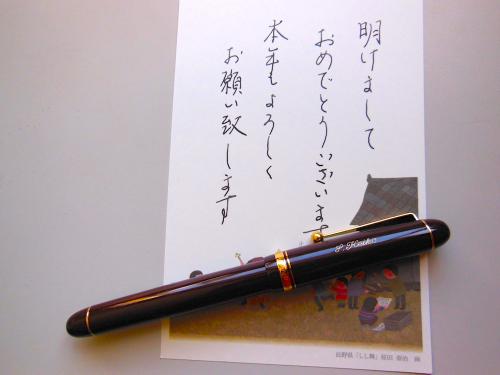 明けまして
おめでとうございます
本年もよろしく
お願い致します
長野県「しし舞」